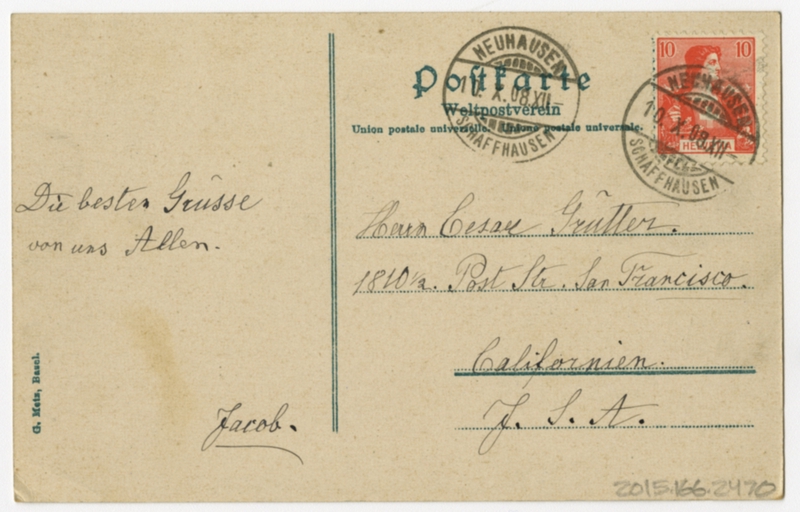 Postkarte
Weltpostverein
Union postale universelle. Unione postale universale.
NEUHAUSEN
10. X. 08. XII–
SCHAFFHAUSEN
10 10
HELVETIA
NEUHAUSEN
10. X. 08. XII–
SCHAFFHAUSEN
Die besten Grüsse
von uns Allen.
Jacob.
Herrn Cesar Grütter.
1810½. Post Str. San Francisco.
Californien.
U. S. A.
G. Metz, Basel.
2015.166.2470